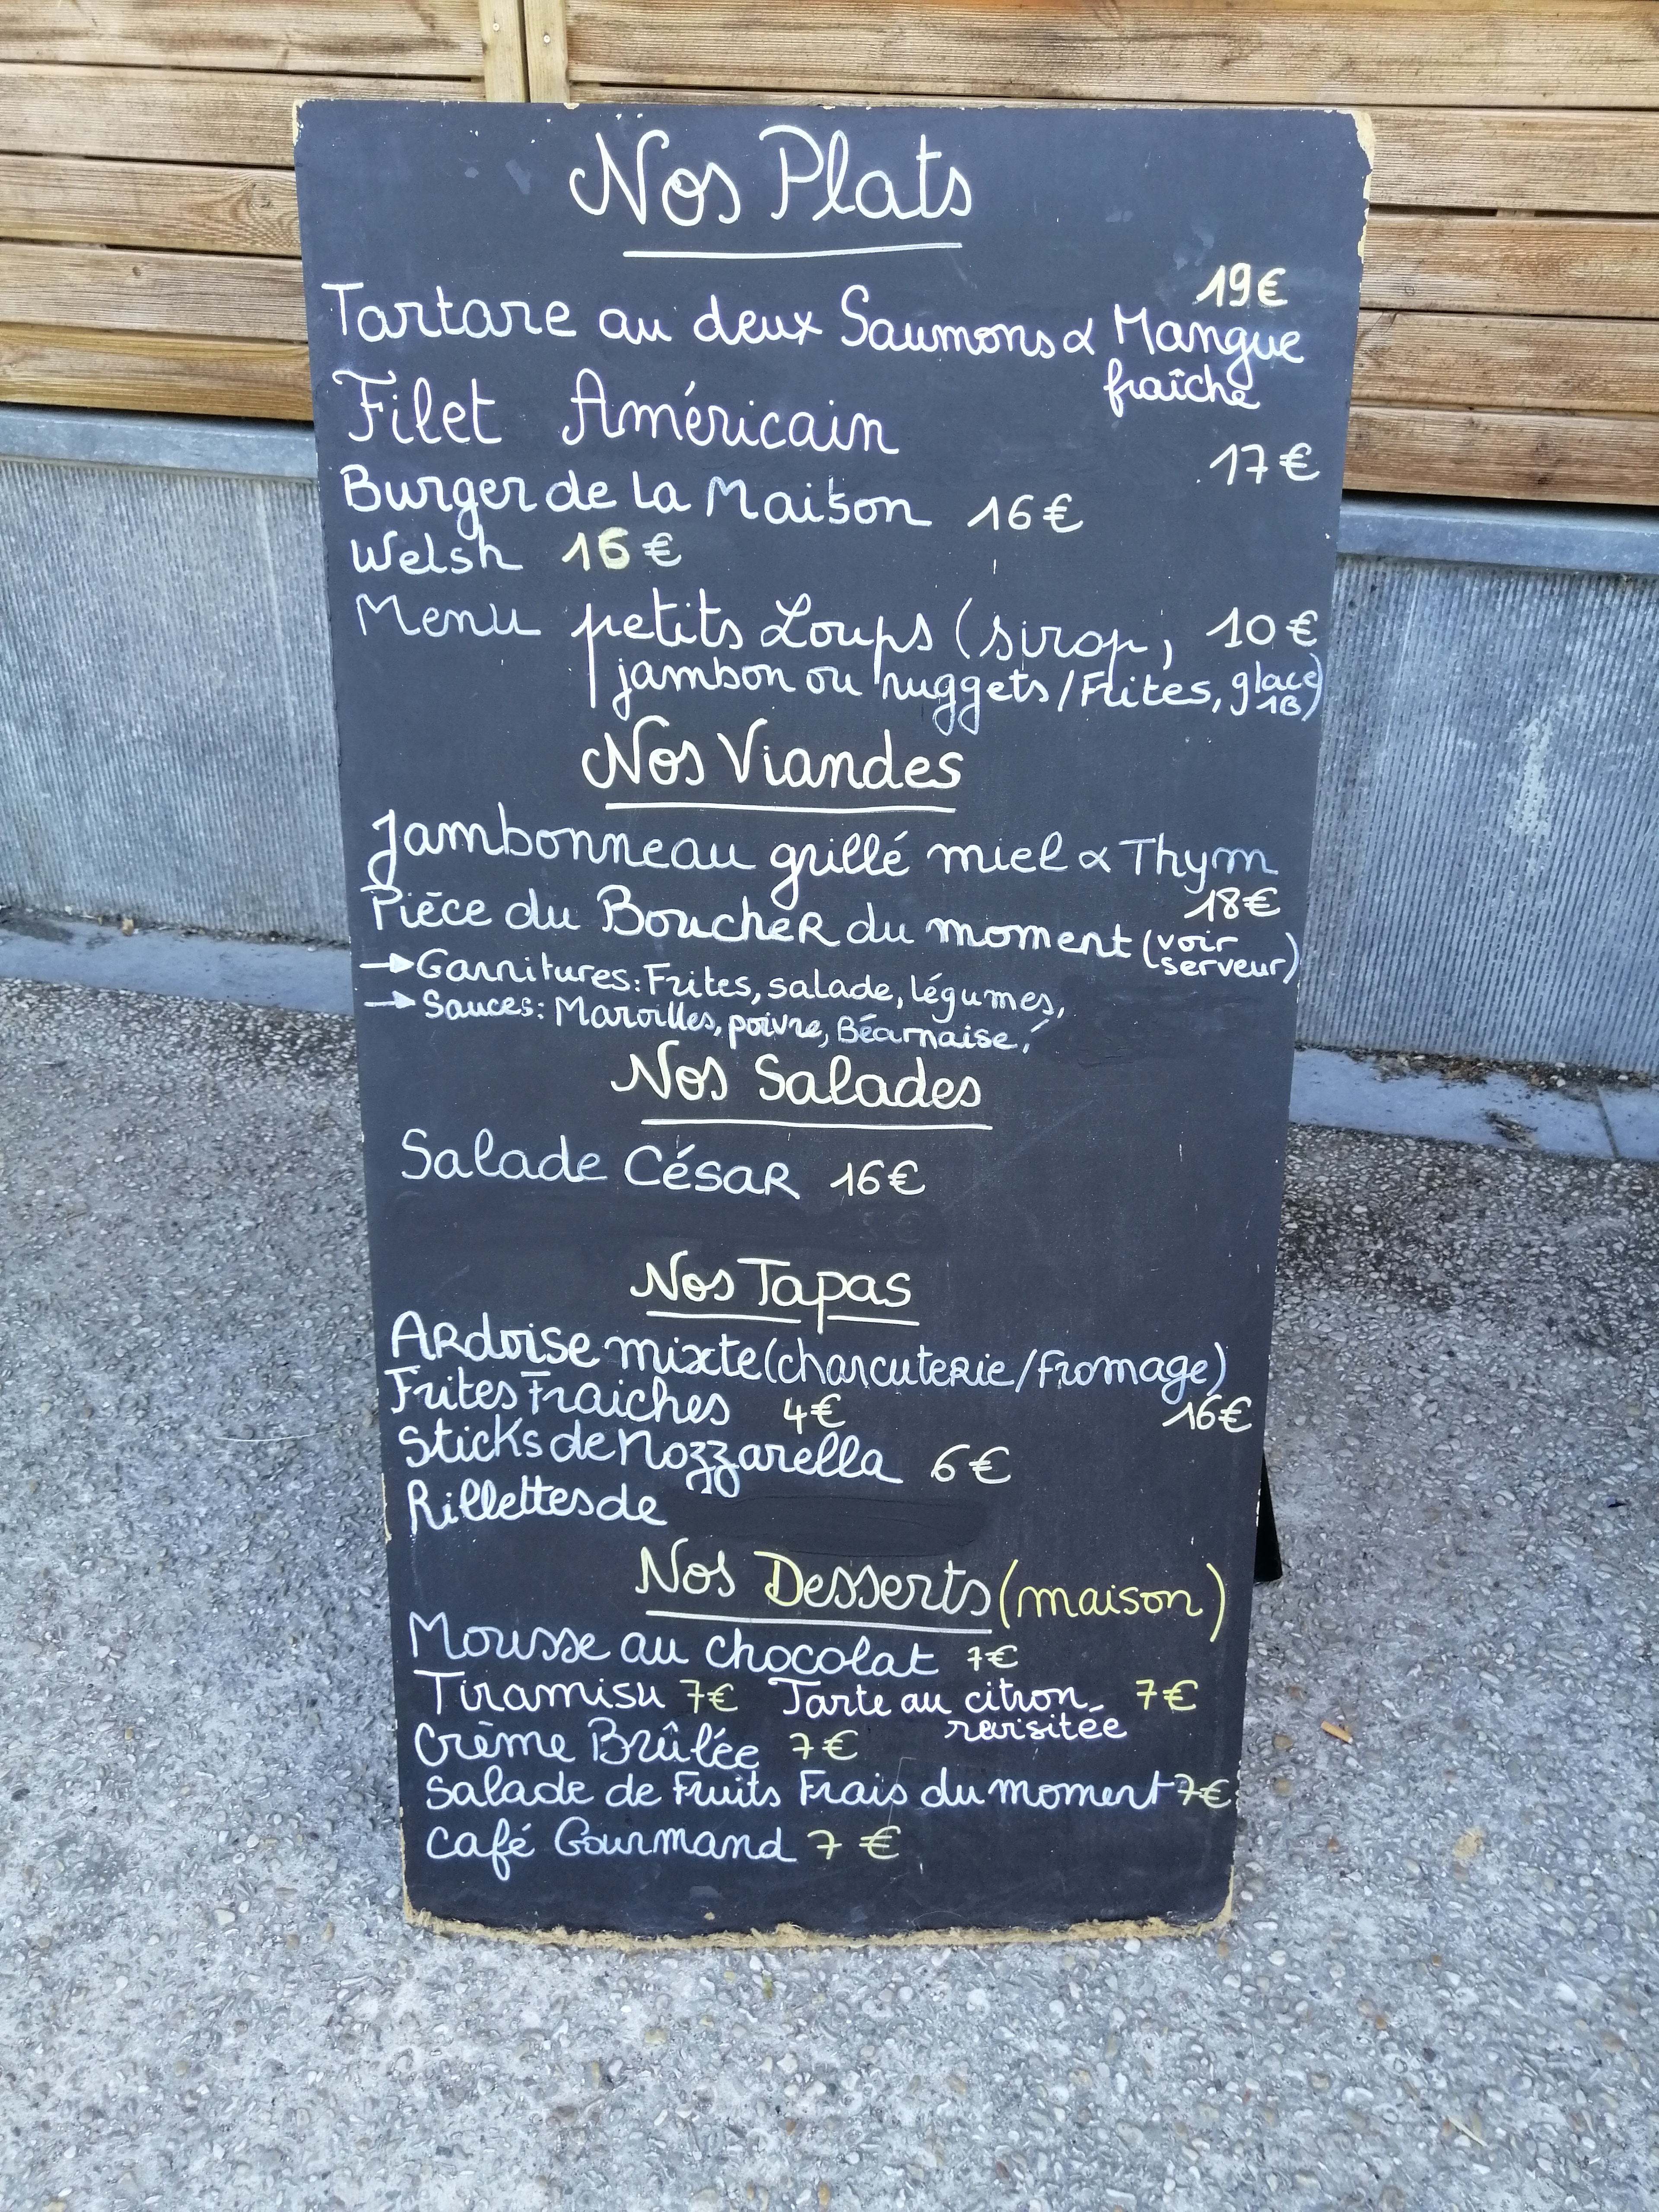 Nos Plats
19€
Tartare au deux Saumons & Mangue
fraîche
Filet Américain
17€
Burger de la Maison 16€
Welsh 16€
Menu petits Loups (sirop, 10€
jambon ou nuggets/Frites, glace)
1B)
Nos Viandes
Jambonneau grillé miel & Thym
18€
Pièce du Boucher du moment (voir
serveur)
→ Garnitures: Frites, salade, légumes,
→ Sauces: Maroilles, poivre, Béarnaise,!
Nos Salades
Salade César 16€
Nos Tapas
Ardoise mixte (charcuterie/fromage)
16€
Frites Fraiches 4€
Sticks de Mozzarella 6€
Rillettes de
Nos Desserts (maison)
Mousse au chocolat 7€
Tiramisu 7€ Tarte au citron 7€
revisitée
Crème Brûlée 7€
Salade de Fruits Frais du moment 7€
Café Gourmand 7€